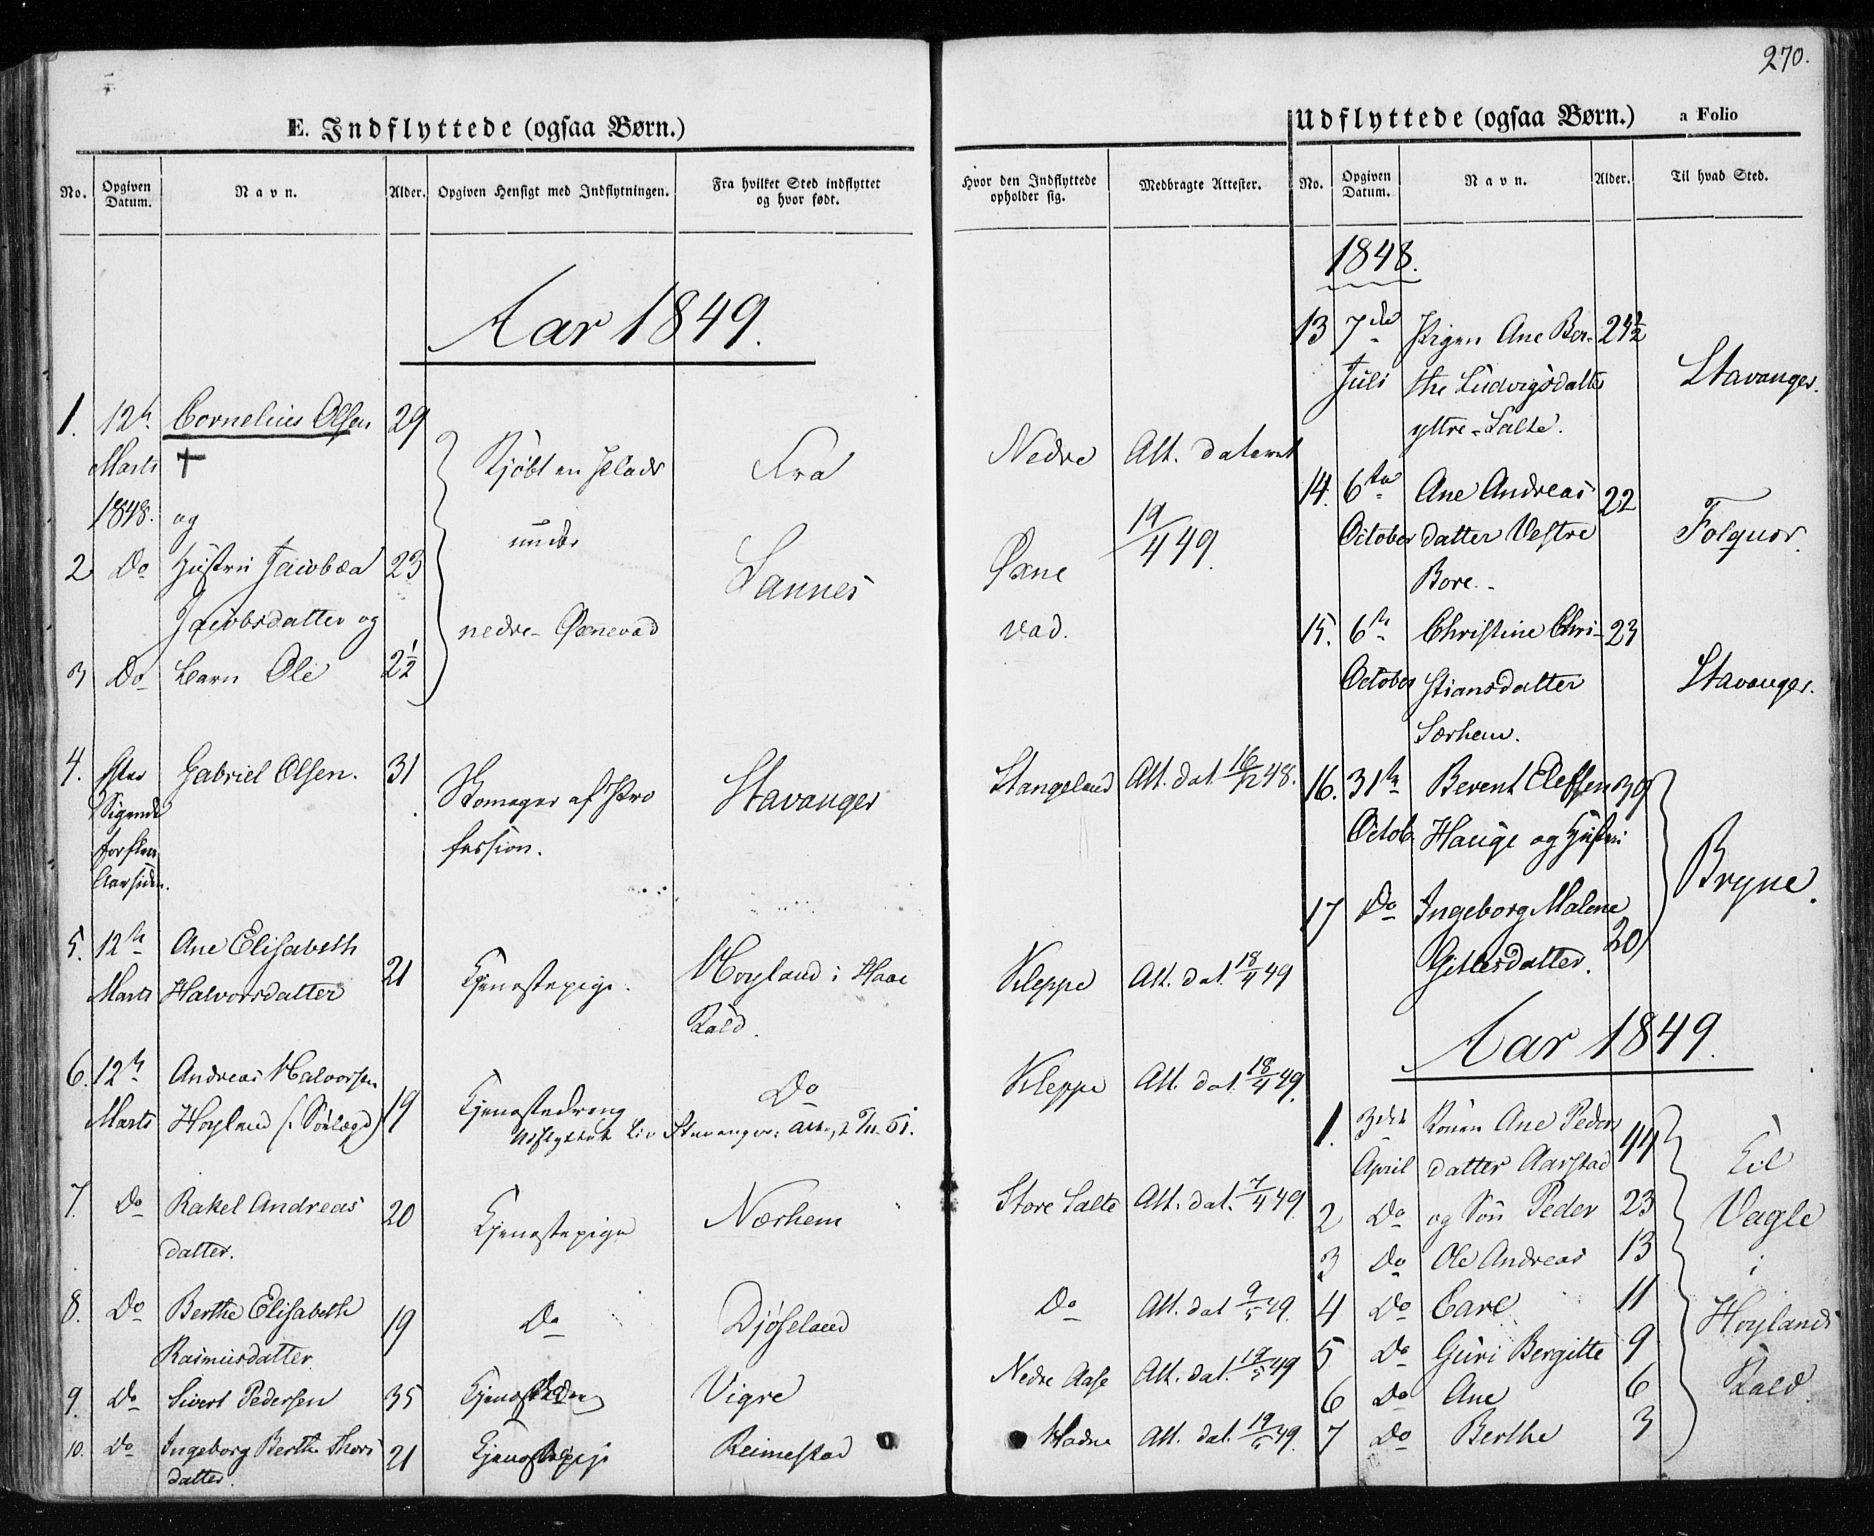 270.
E. Indflyttede (ogsaa Børn.)
No. Opgiven Datum. Navn. Alder. Opgiven Hensigt med Indflytningen. Fra hvilket Sted indflyttet og hvor født.
Hvor den Indflyttede opholder sig. Medbragte Attester.
Aar 1849.
1. 12te Cornelius Olsen 29 Kjøbt en Plads Fra Nedre Att. dateret
Marts †
1848. og under Øxne 19/4 49.
2 Do Hustru Jacobæa 23 Sannes
Jacobsdatter og nedre Øxnevad vad.
3 Do barn Ole 2 1/2
4. Gabriel Olsen. 31 Skomager af Pro Stavanger Stangeland Att. dat. 16/12 48.
Sigende
for flere fession.
Aar siden.
5. 12te Ane Elisabeth 21 Tjenestepige. Høyland i Haae Kleppe Att. dat. 18/4 49
Marts Halvorsdatter Kald.
6. 12te Andreas Halvorsen 19 Tjenestedreng Do Kleppe Att. dat. 18/4 49.
Marts Høyland
Udflyttet til Stavanger
7. Do Rakel Andreas 20 Tjenestepige Nærhem Store Salte Att. dat. 7/4 49.
datter.
8. Do Berthe Elisabeth 19 Do Djøseland Do Att. dat 9/5 49.
Rasmusdatter
9. Do Sivert Pedersen 35 Vigre Nedre Aase Att. dat. 19/5 49
10. Do Ingeborg Berthe Thors 21 Reimestad Hadne Att. dat. 19/5 49.
datter.
Udflyttede (ogsaa Børn.) a Folio
No. Opgiven Datum. Navn. Alder. Til hvad Sted.
1848.
13 7de Pigen Ane Ber- 24 1/2 Stavanger.
Juli the Ludvigsdatter
yttre Salte.
14. 6te Ane Andreas 22 Folquor.
October datter Vestre
Bore.
15. 6te Christine Chri- 23 Stavanger.
October stiansdatter
Særhem.
16. 31te Berent Elefsen 30 Bryne.
Octob. Hauge og Hustru
17 Do Ingeborg Malene 20
Gitlesdatter.
Aar 1849.
1. 3die Konen Ane Peders 44 Til
April datter Aarstad Vagle
2 Do og Søn Peder 23 i
3 Do Ole Andreas 13 Høylands
4 Do Carl 11 Kald.
5 Do Guri Bergitte 9
6 Do Ane 6
7 Do Berthe 3